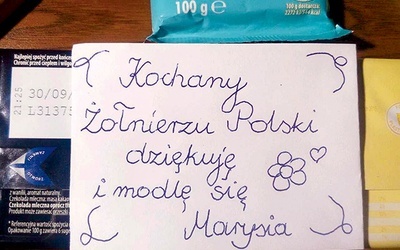 100 g e
100 g dostarcza:
Najlepiej spożyć przed końcem
Chronić przed ciepłem i wilgo
21:25
30/09/
L31375
Kochany
Żołnierzu Polski
dziękuję
i modlę się
Marysia
z wanilii, aromat naturalny.
Czekolada mleczna: masa kakao
Czekolada mleczna oprócz tłu
Produkt może zawierać
* Referencyjna wartość spożycia
Opakowanie 100 g zawiera 6